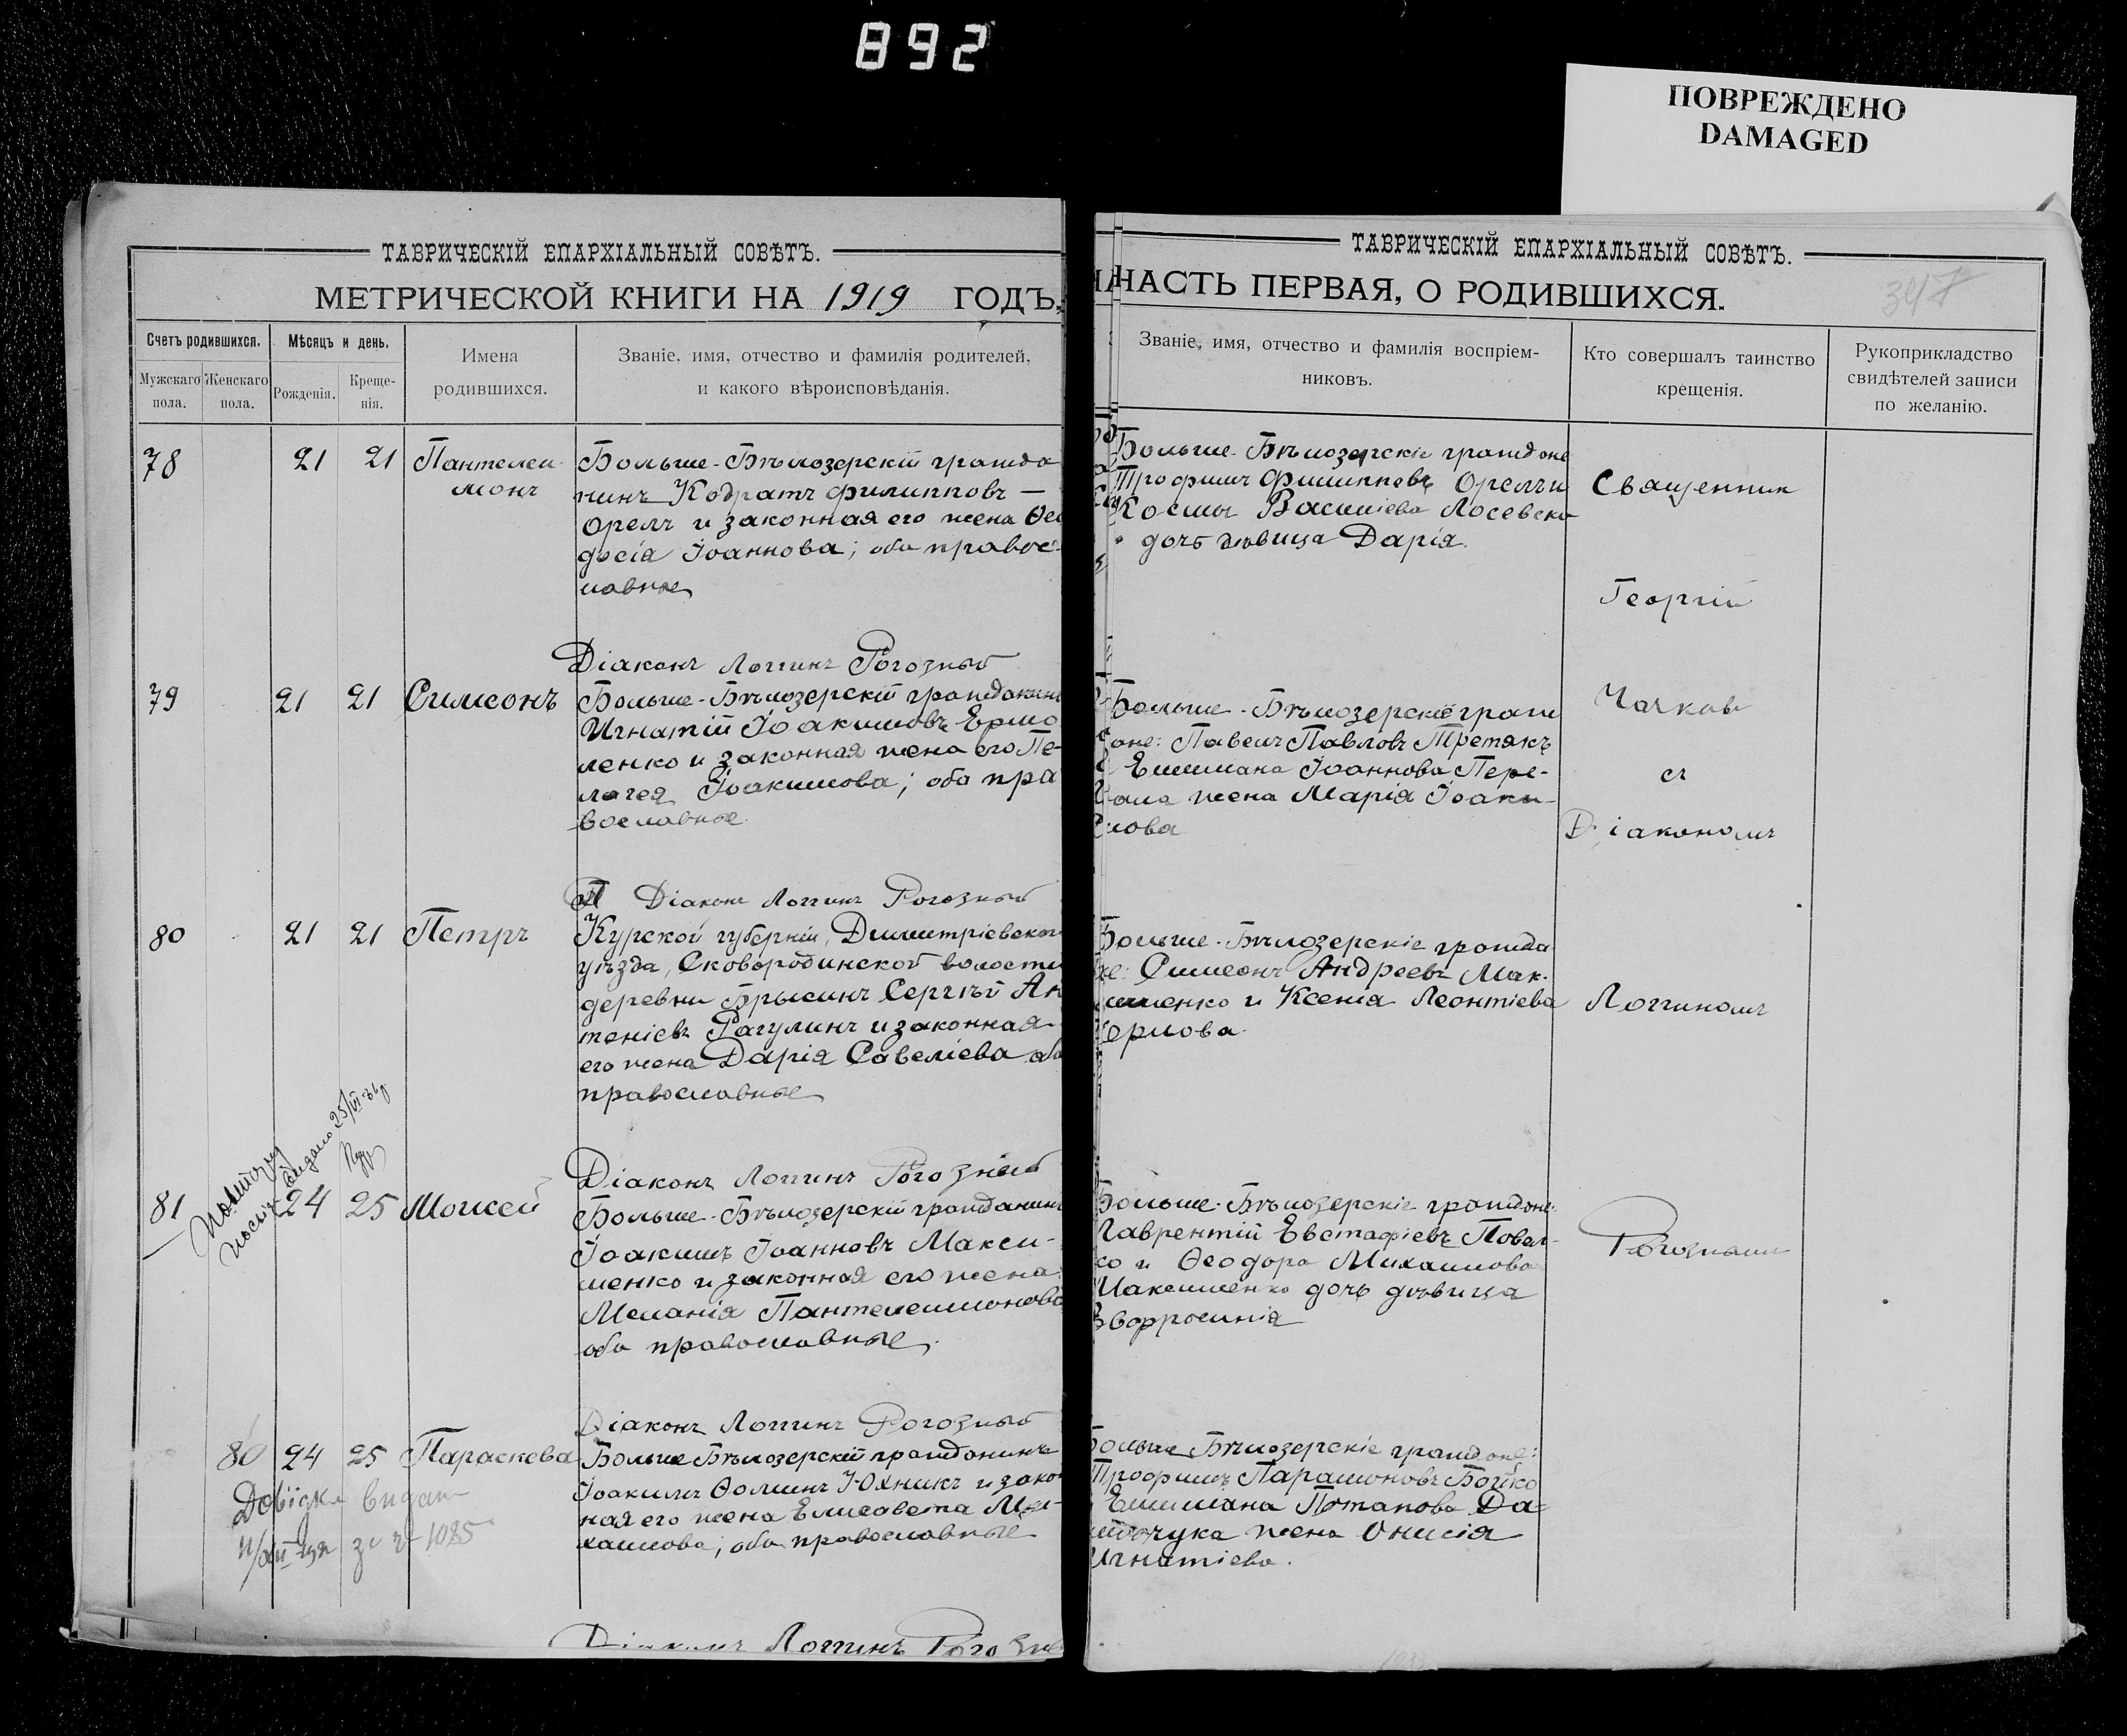 892
ПОВРЕЖДЕНО
DAMAGED
ТАВРИЧЕСКІЙ ЕПАРХІАЛЬНЫЙ СОВѢТЪ.
МЕТРИЧЕСКОЙ КНИГИ НА 1919 ГОДЪ,
Счетъ родившихся.
Мужскаго пола.
Женскаго пола.
Мѣсяцъ и день.
Рожденія.
Креще-
нія.
Имена
родившихся.
Званіе, имя, отчество и фамилія родителей,
и какого вѣроисповѣданія.
78 21 21 Пантелеи-
монъ
Больше-Бѣлозерскій гражда
нинъ Кодратъ Филипповъ —
Орелъ и законная его жена Ѳео
досія Іоаннова; оба правос-
лавные
Діаконъ Логгинъ Рогозный
79 21 21 Симеонъ
Больше-Бѣлозерскій гражданинъ
Игнатій Іоакимовъ Ермо
ленко и законная жена его Пе-
лагея Іоакимова; оба пра
вославные.
Діаконъ Логгинъ Рогозный
80 21 21 Петръ
Курской губерніи, Димитріевскаго
уѣзда, Сковородинской волости
деревни Брысинъ Сергѣй Ан
теніевъ Рагулинъ и законная
его жена Дарія Савеліева оба
православные
Діаконъ Логгинъ Рогозный
81 24 25 Моисей
Больше-Бѣлозерскій гражданинъ
Іоакимъ Іоанновъ Макси-
менко и законная его жена
Меланія Пантелеимонова
оба православные.
Діаконъ Логгинъ Рогозный
80 24 25 Параскева
Больше Бѣлозерскій гражданинъ
Іоакимъ Ѳоминъ Юхникъ и закон
ная его жена Елисавета Ми-
хаилова; оба православные
Довідка видан
за № 1085
Діаконъ Логгинъ Рогозный
ТАВРИЧЕСКІЙ ЕПАРХІАЛЬНЫЙ СОВѢТЪ.
ЧАСТЬ ПЕРВАЯ, О РОДИВШИХСЯ.
347
Званіе, имя, отчество и фамилія воспріем-
никовъ.
Кто совершалъ таинство
крещенія.
Рукоприкладство
свидѣтелей записи
по желанію.
Больше-Бѣлозерскіе граждане
Трофимъ Филипповъ Орелъ и
Космы Василіева Лосевско
дочь дѣвица Дарія.
Больше-Бѣлозерскіе граж
дане: Павелъ Павловъ Третякъ
Емиліана Іоаннова Пере-
вала жена Марія Іоаки-
мова
Больше-Бѣлозерскіе гражда
не: Симеонъ Андреевъ Мак-
сименко и Ксенія Леонтіева
Больше-Бѣлозерскіе граждане:
Лаврентій Евстафіевъ Повал-
ко и Ѳеодора Михаилова
Максименко дочь дѣвица
Евфросинія
Больше Бѣлозерскіе граждане:
Трофимъ Парамоновъ Бойко
Емиліана Потапова Да-
жена Онисія
Игнатіева.
Священник
Георгій
Чачковъ
съ
Діакономъ
Логгиномъ
Рогознымъ